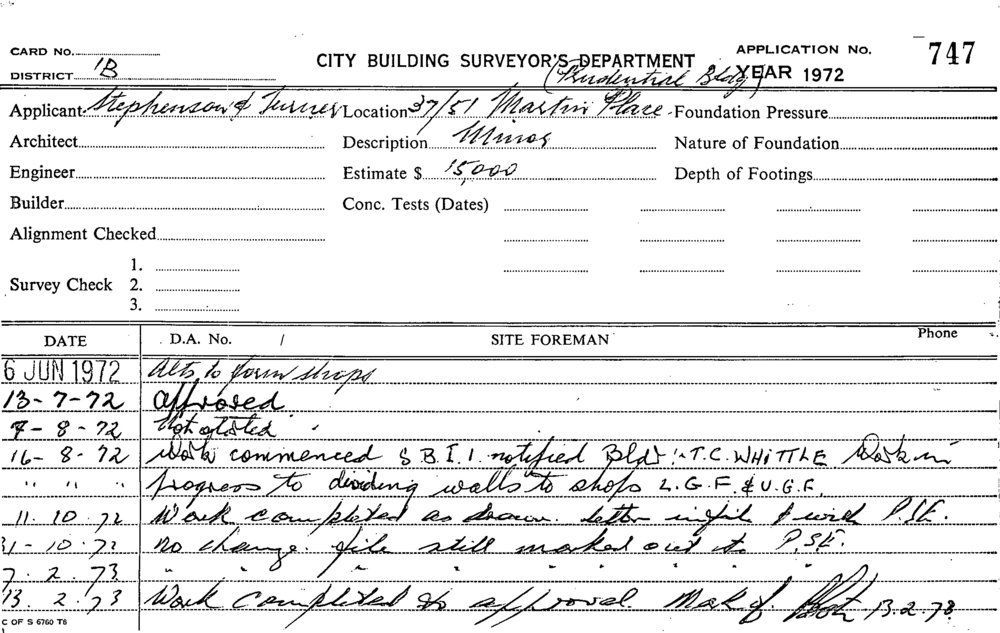 CARD No.
DISTRICT 1B
CITY BUILDING SURVEYOR'S DEPARTMENT
(Prudential Bldg)
APPLICATION No. 747
YEAR 1972
Applicant Stephenson & Turner Location 37/51 Martin Place Foundation Pressure
Architect Description Minor Nature of Foundation
Engineer Estimate $ 15,000 Depth of Footings
Builder Conc. Tests (Dates)
Alignment Checked
1.
Survey Check 2.
3.
DATE D.A. No. / SITE FOREMAN Phone
6 JUN 1972 Alts to form shops
13-7-72 approved.
7-8-72 Not started
16-8-72 Work commenced S.B.I.I. notified Bldr :- T.C. WHITTLE Work in
" " " progress to dividing walls to shops L.G.F. & U.G.F.
11.10.72 Work completed as drawn. letter in file & with P.S.E.
31-10-72 no change. file still marked out to P.S.E.
7.2.73 " " " " " " " "
13.2.73 Work completed to approval. 13.2.73.
C OF S 6760 T6